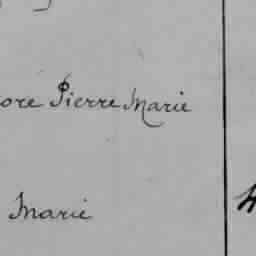 ore Pierre Marie
Marie